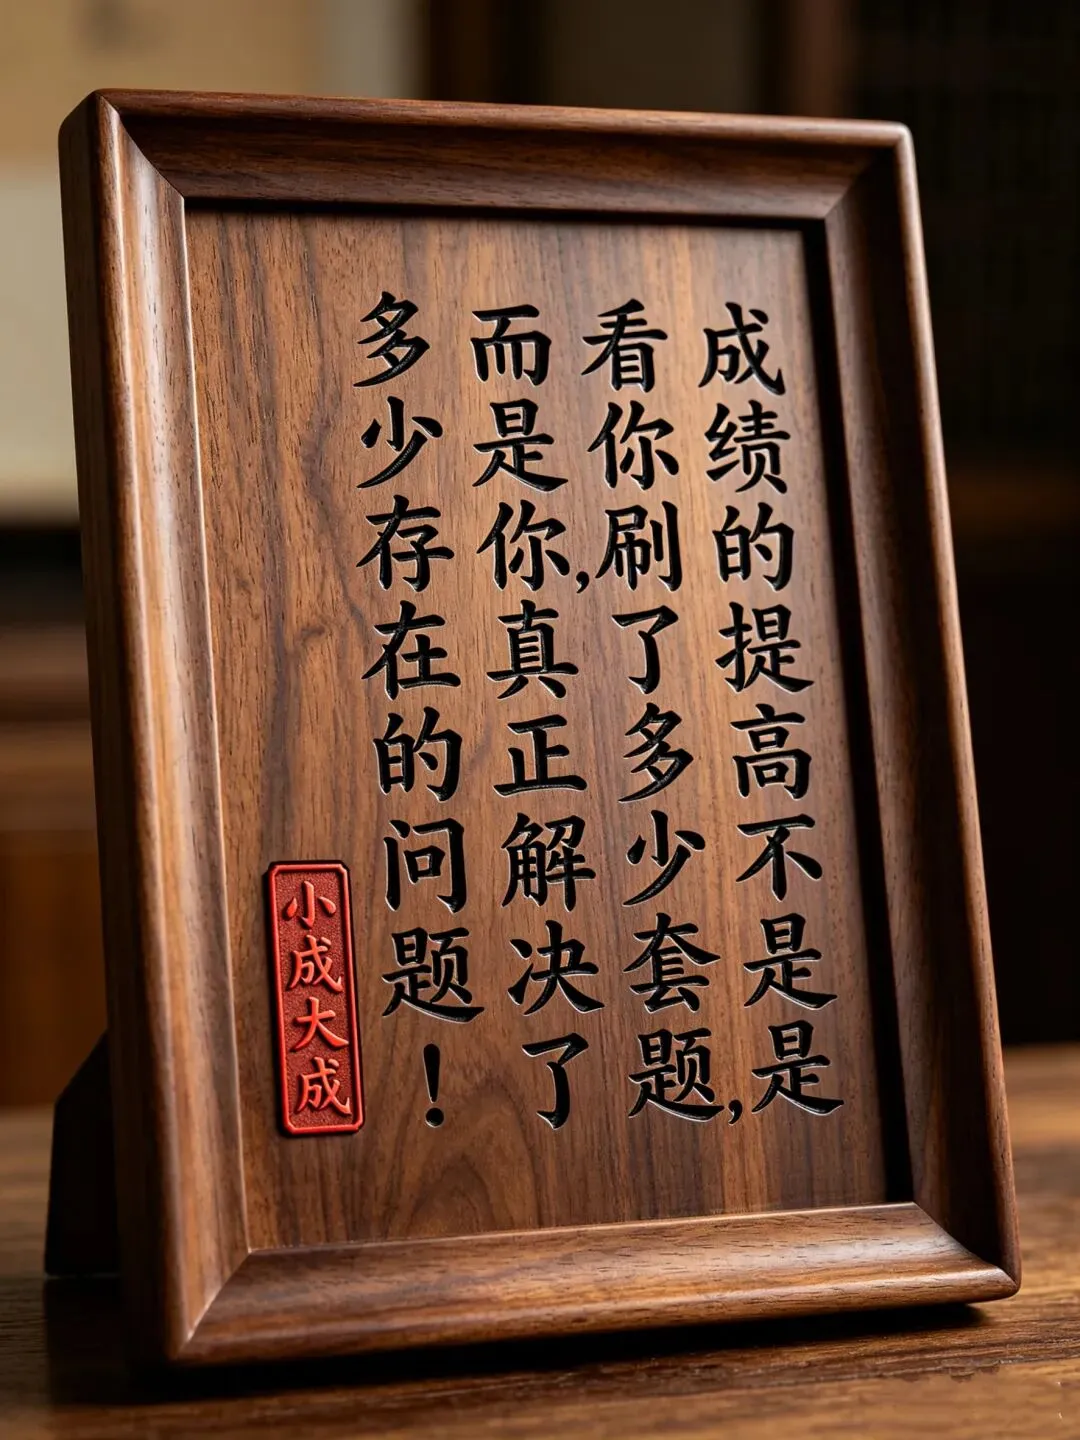 成绩的提高不是是
看你刷了多少套题,
而是你,真正解决了
多少存在的问题!
小成大成